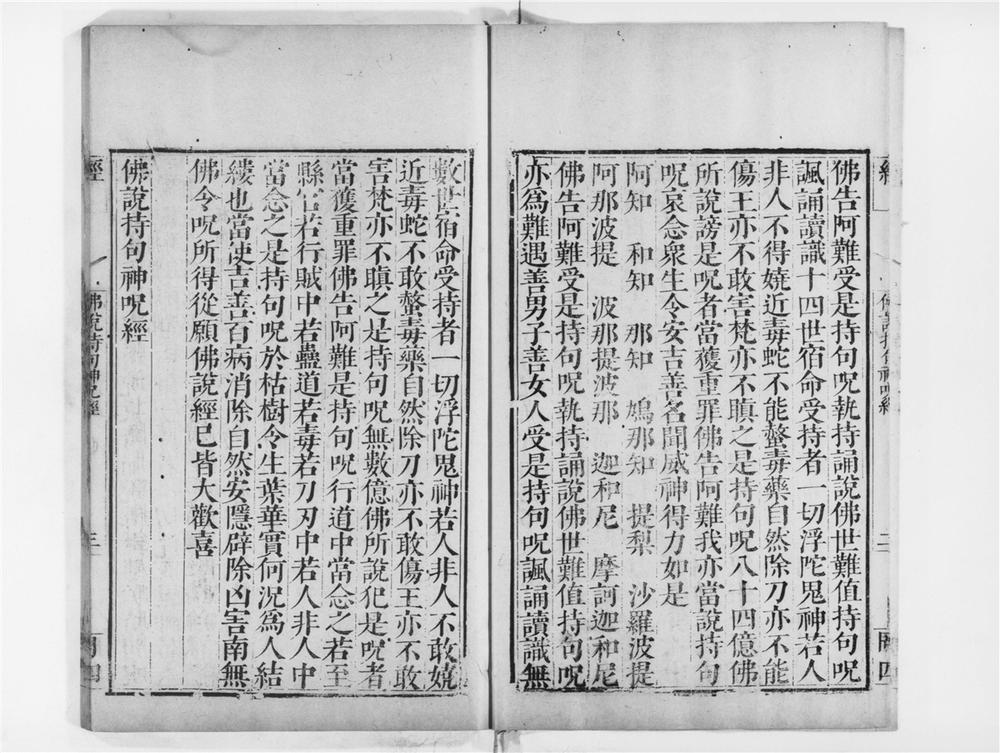 佛告阿難受是持句呪執持誦說佛世難值持句呪
諷誦讀識十四世宿命受持者一切浮陀鬼神若人
非人不得嬈近毒蛇不能螫毒藥自然除刀亦不能
傷王亦不敢害梵亦不瞋之是持句呪八十四億佛
所說謗是呪者當獲重罪佛告阿難我亦當說持句
呪哀念衆生令安吉善名聞威神得力如是
阿知 和知 那知 鳩那知 提梨 沙羅波提
阿那波提 波那提波那 迦和尼 摩訶迦和尼
佛告阿難受是持句呪執持誦說佛世難值持句呪
亦爲難遇善男子善女人受是持句呪諷誦讀識無
數世宿命受持者一切浮陀鬼神若人非人不敢嬈
近毒蛇不敢螫毒藥自然除刀亦不敢傷王亦不敢
害梵亦不瞋之是持句呪無數億佛所說犯是呪者
當獲重罪佛告阿難是持句呪行道中當念之若至
縣官若行賊中若蠱道若毒若刀刃中若人非人中
當念之是持句呪於枯樹令生葉華實何況爲人結
縷也當使吉善百病消除自然安隱辟除凶害南無
佛令呪所得從願佛說經已皆大歡喜
佛說持句神呪經
經
佛說持句神呪經
三